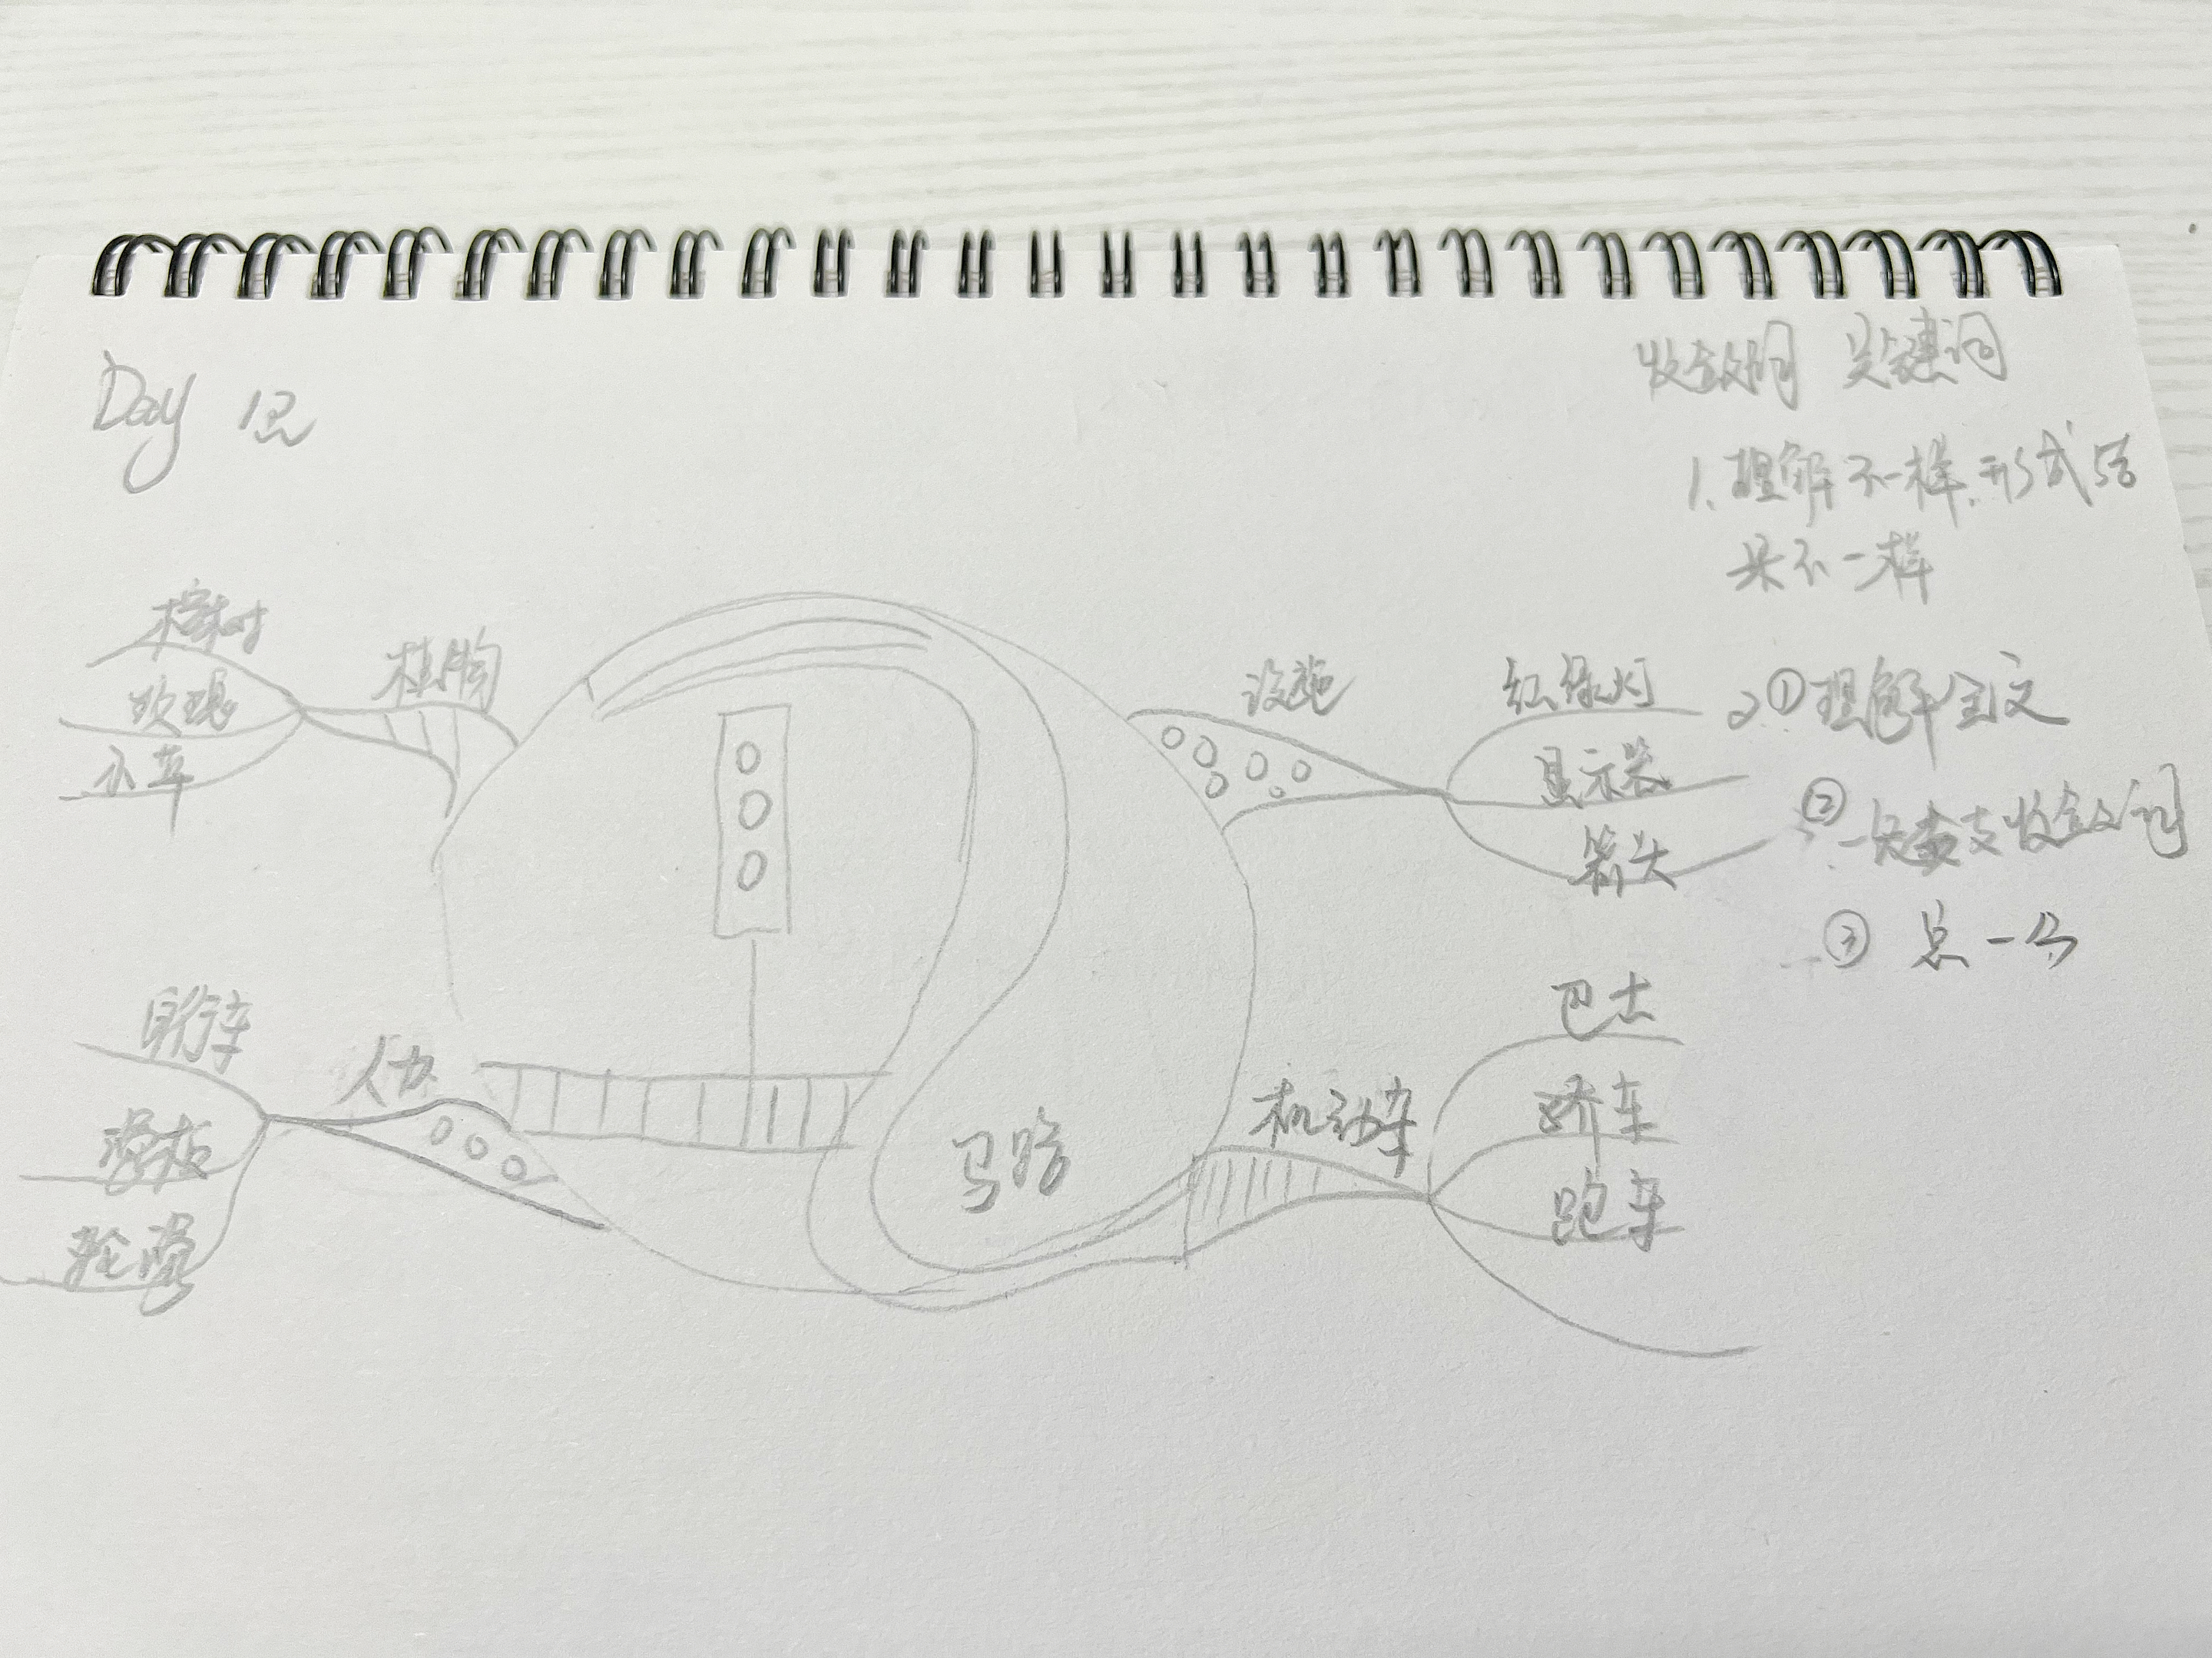 Day 12
收敛词 关键词
1. 理解不一样.形式结
果不一样
2.①理解全文
② 收敛词
③ 总一分
植物
榕树
玫瑰
小草
设施
红绿灯
显示器
箭头
人力
自行车
滑板
轮滑
机动车
巴士
轿车
跑车
马路